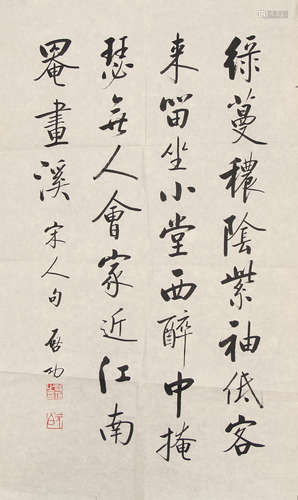 绿蔓秾陰紫袖低客
来留坐小堂西醉中掩
瑟無人會家近江南
罨畫溪 宋人句 启功